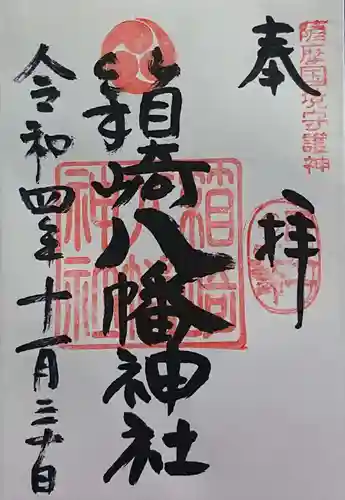 薩摩国境守護神
奉拝
箱崎八幡神社
箱崎八幡神社
令和四年十一月三十日